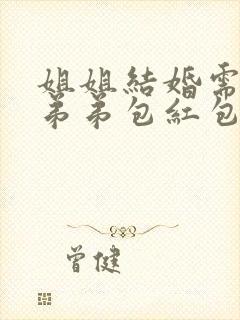 姐姐結婚需
弟弟包紅包
曾健